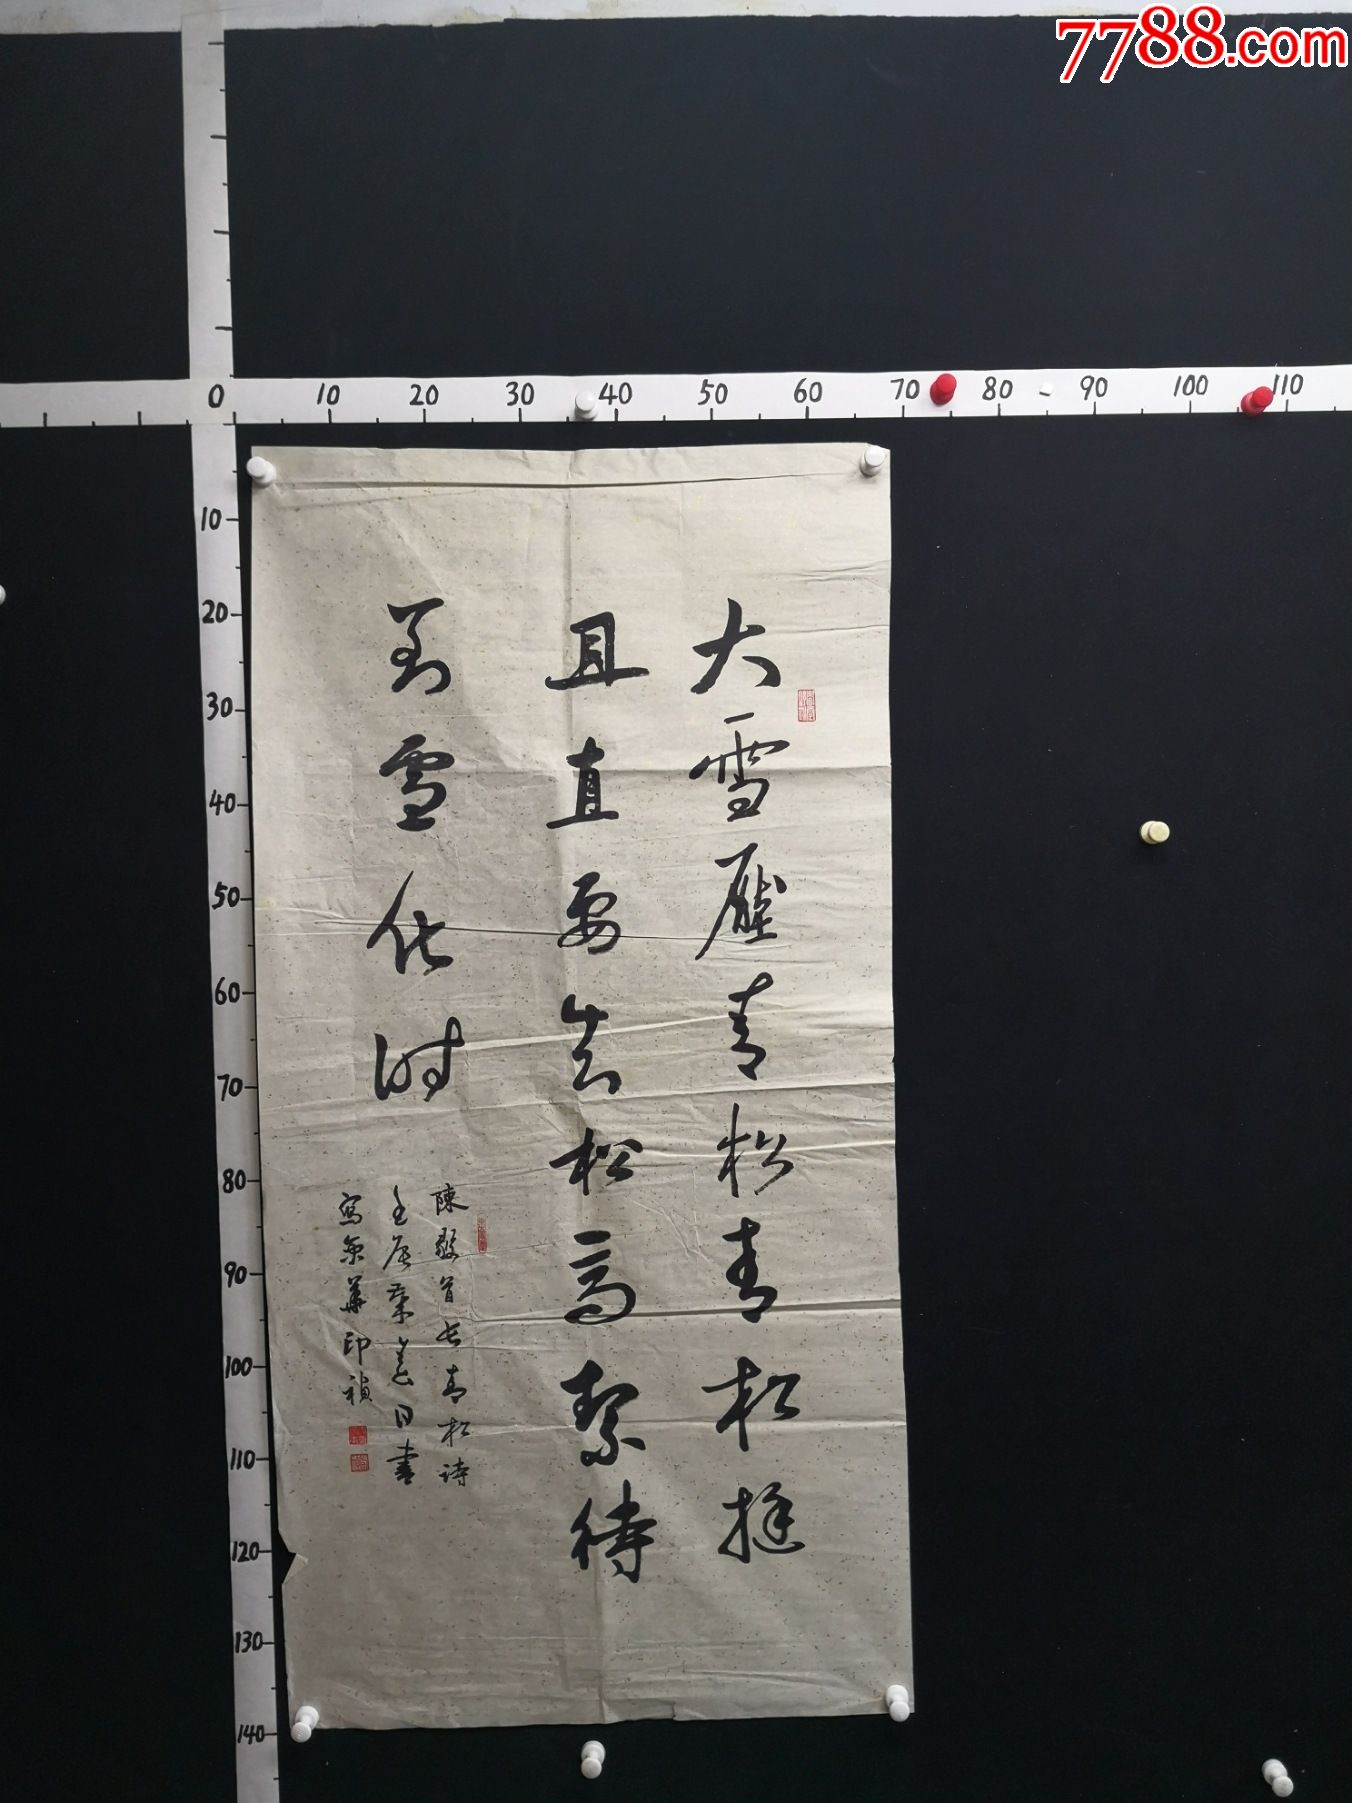 7788.com
0 10 20 30 40 50 60 70 80 90 100 110
10
20
30
40
50
60
70
80
90
100
110
120
130
140
大雪壓青松青松挺
且直要知松高潔待
到雪化时
陳毅首长青松诗
壬辰年善日書
寫於華印禎